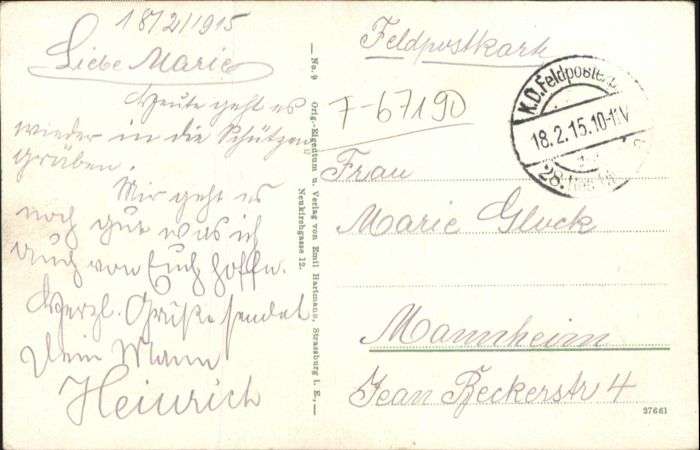 18/2/1915
Liebe Marie
Heute geht es
wieder in die Schützen
gräben.
Mir geht es
noch gut was ich
auch von Euch hoffe.
Herzl. Grüße sendet
Dein Mann
Heinrich
— No. 9 Orig.-Eigentum u. Verlag von Emil Hartmann, Strassburg i. E., —
Neukirchgasse 12.
Feldpostkarte
7-67190
K.D. Feldposte
18.2.15.10-11V
28.
Frau
Marie Gluck
Mannheim
Jean Beckerstr 4
37661